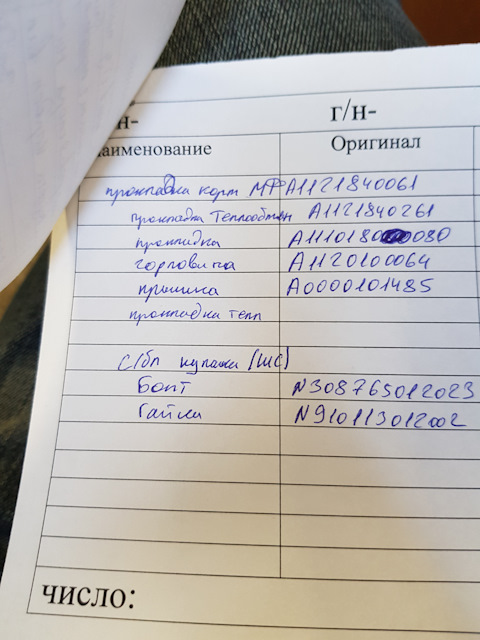 н- г/н-
аименование Оригинал
прокладка корп МФ A1121840061
прокладка теплообмен A1121840261
прокладка A1110180080
горловина A1120100064
крышка A0000101485
прокладка тепл
с/бл кулака (ШС)
Болт N308765012023
Гайка N910113012002
число: